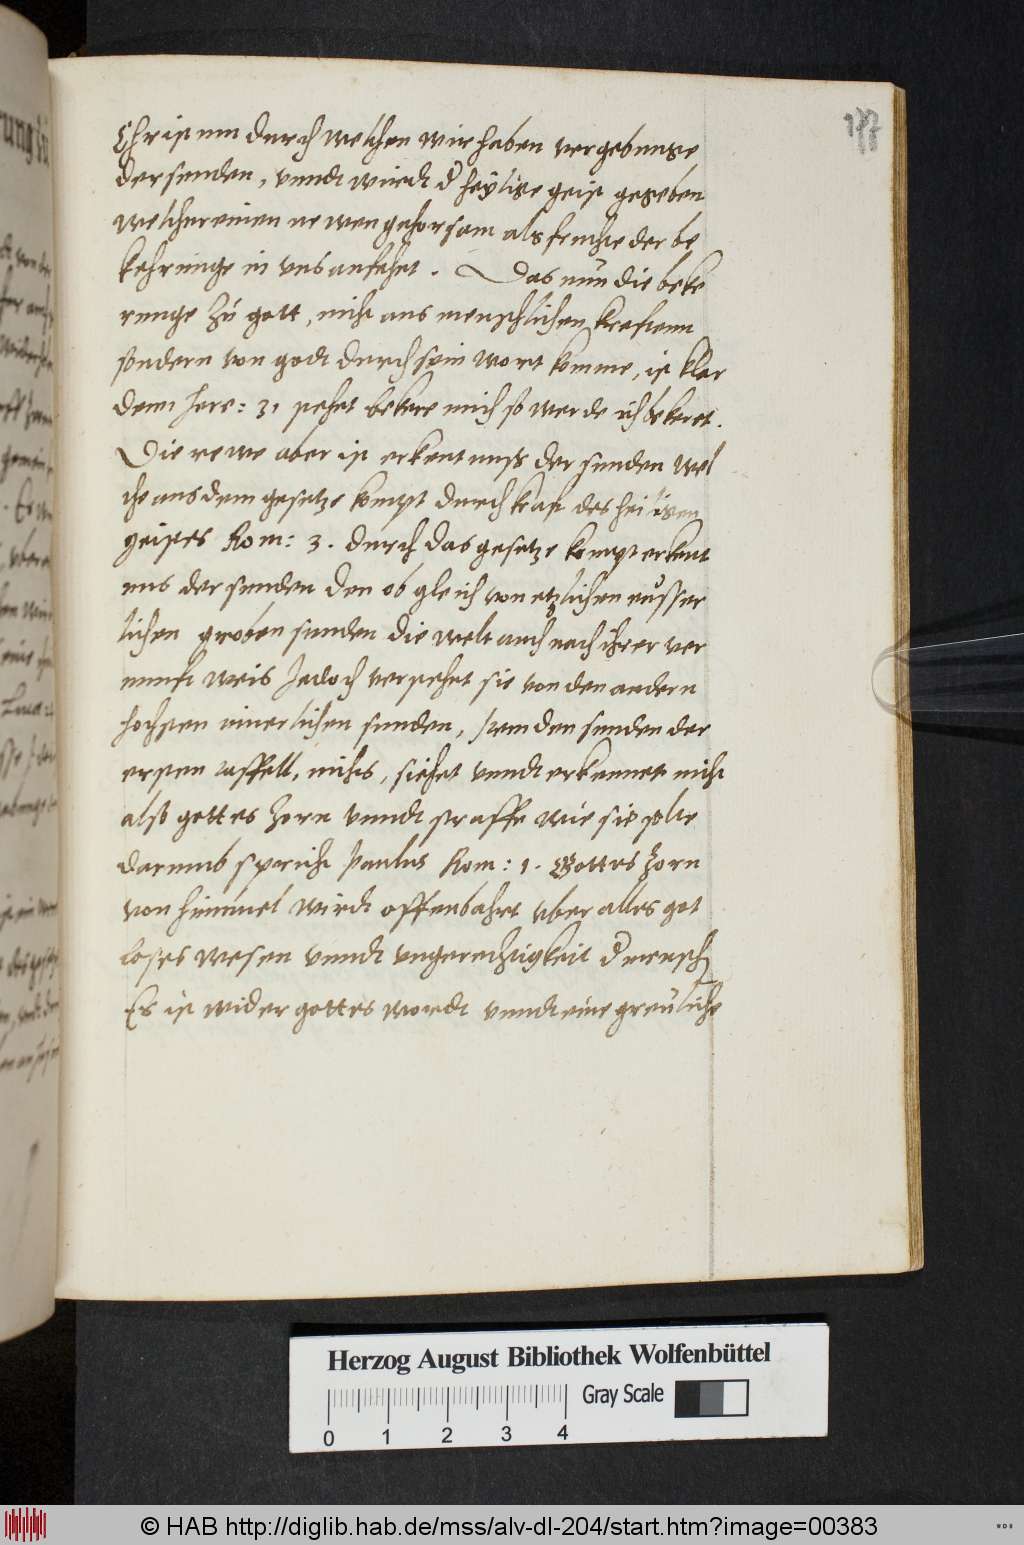 Christum durch welchen wir haben vergebunge
der sunden, vnndt wirdt d' heylige geist gegeben
welcher einen newen gehorsam als fruchte der be
kehrunge in vns anfahet. Das nun die beke
runge zu gott, nicht aus menschlichen krefftenn
sondern von godt durch sein wort komme, ist klar
denn Jere: 31 stehet bekere mich so werde ich bekeret.
Die rewe aber ist erkentnuss der sunden wel
che aus dem gesetze kompt durch krafft des heiligen
geistes Rom: 3. durch das gesetze kompt erkent
nus der sunden den ob gleich von etzlichen eusser
lichen groben sunden die welt auch nach ihrer ver
nunfft weis Jedoch verstehet sie von den andern
hochsten innerlichen sunden, Item den sunden der
ersten taffell, nichts, siehet vnndt erkennet nicht
also gottes zorn vnndt straffe wie sie solte
darumb spricht Paulus Rom: 1. Gottes zorn
von himmel wirdt offenbahrt vber alles got
loses wesen vnndt vngerechtigkeit d' mensch
Es ist wider gottes wordt vnndt eine greuliche
Herzog August Bibliothek Wolfenbüttel
Gray Scale
0 1 2 3 4
© HAB http://diglib.hab.de/mss/alv-dl-204/start.htm?image=00383